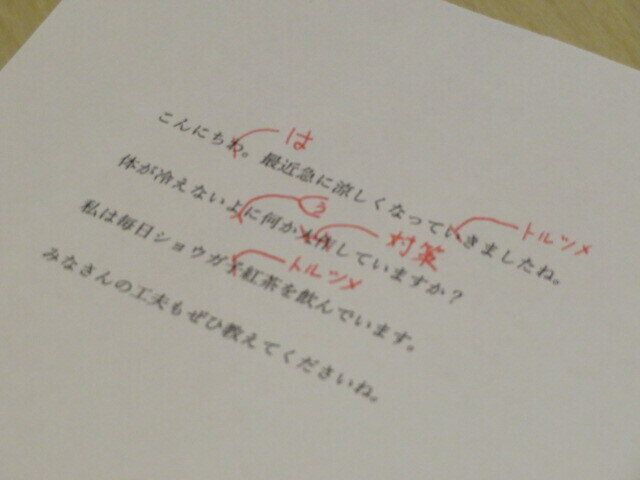 は
こんにちわ。最近急に涼しくなっていきましたね。
トルツメ
う
体が冷えないよに何か大作していますか？
対策
私は毎日ショウガ紅茶を飲んでいます。
トルツメ
みなさんの工夫もぜひ教えてくださいね。